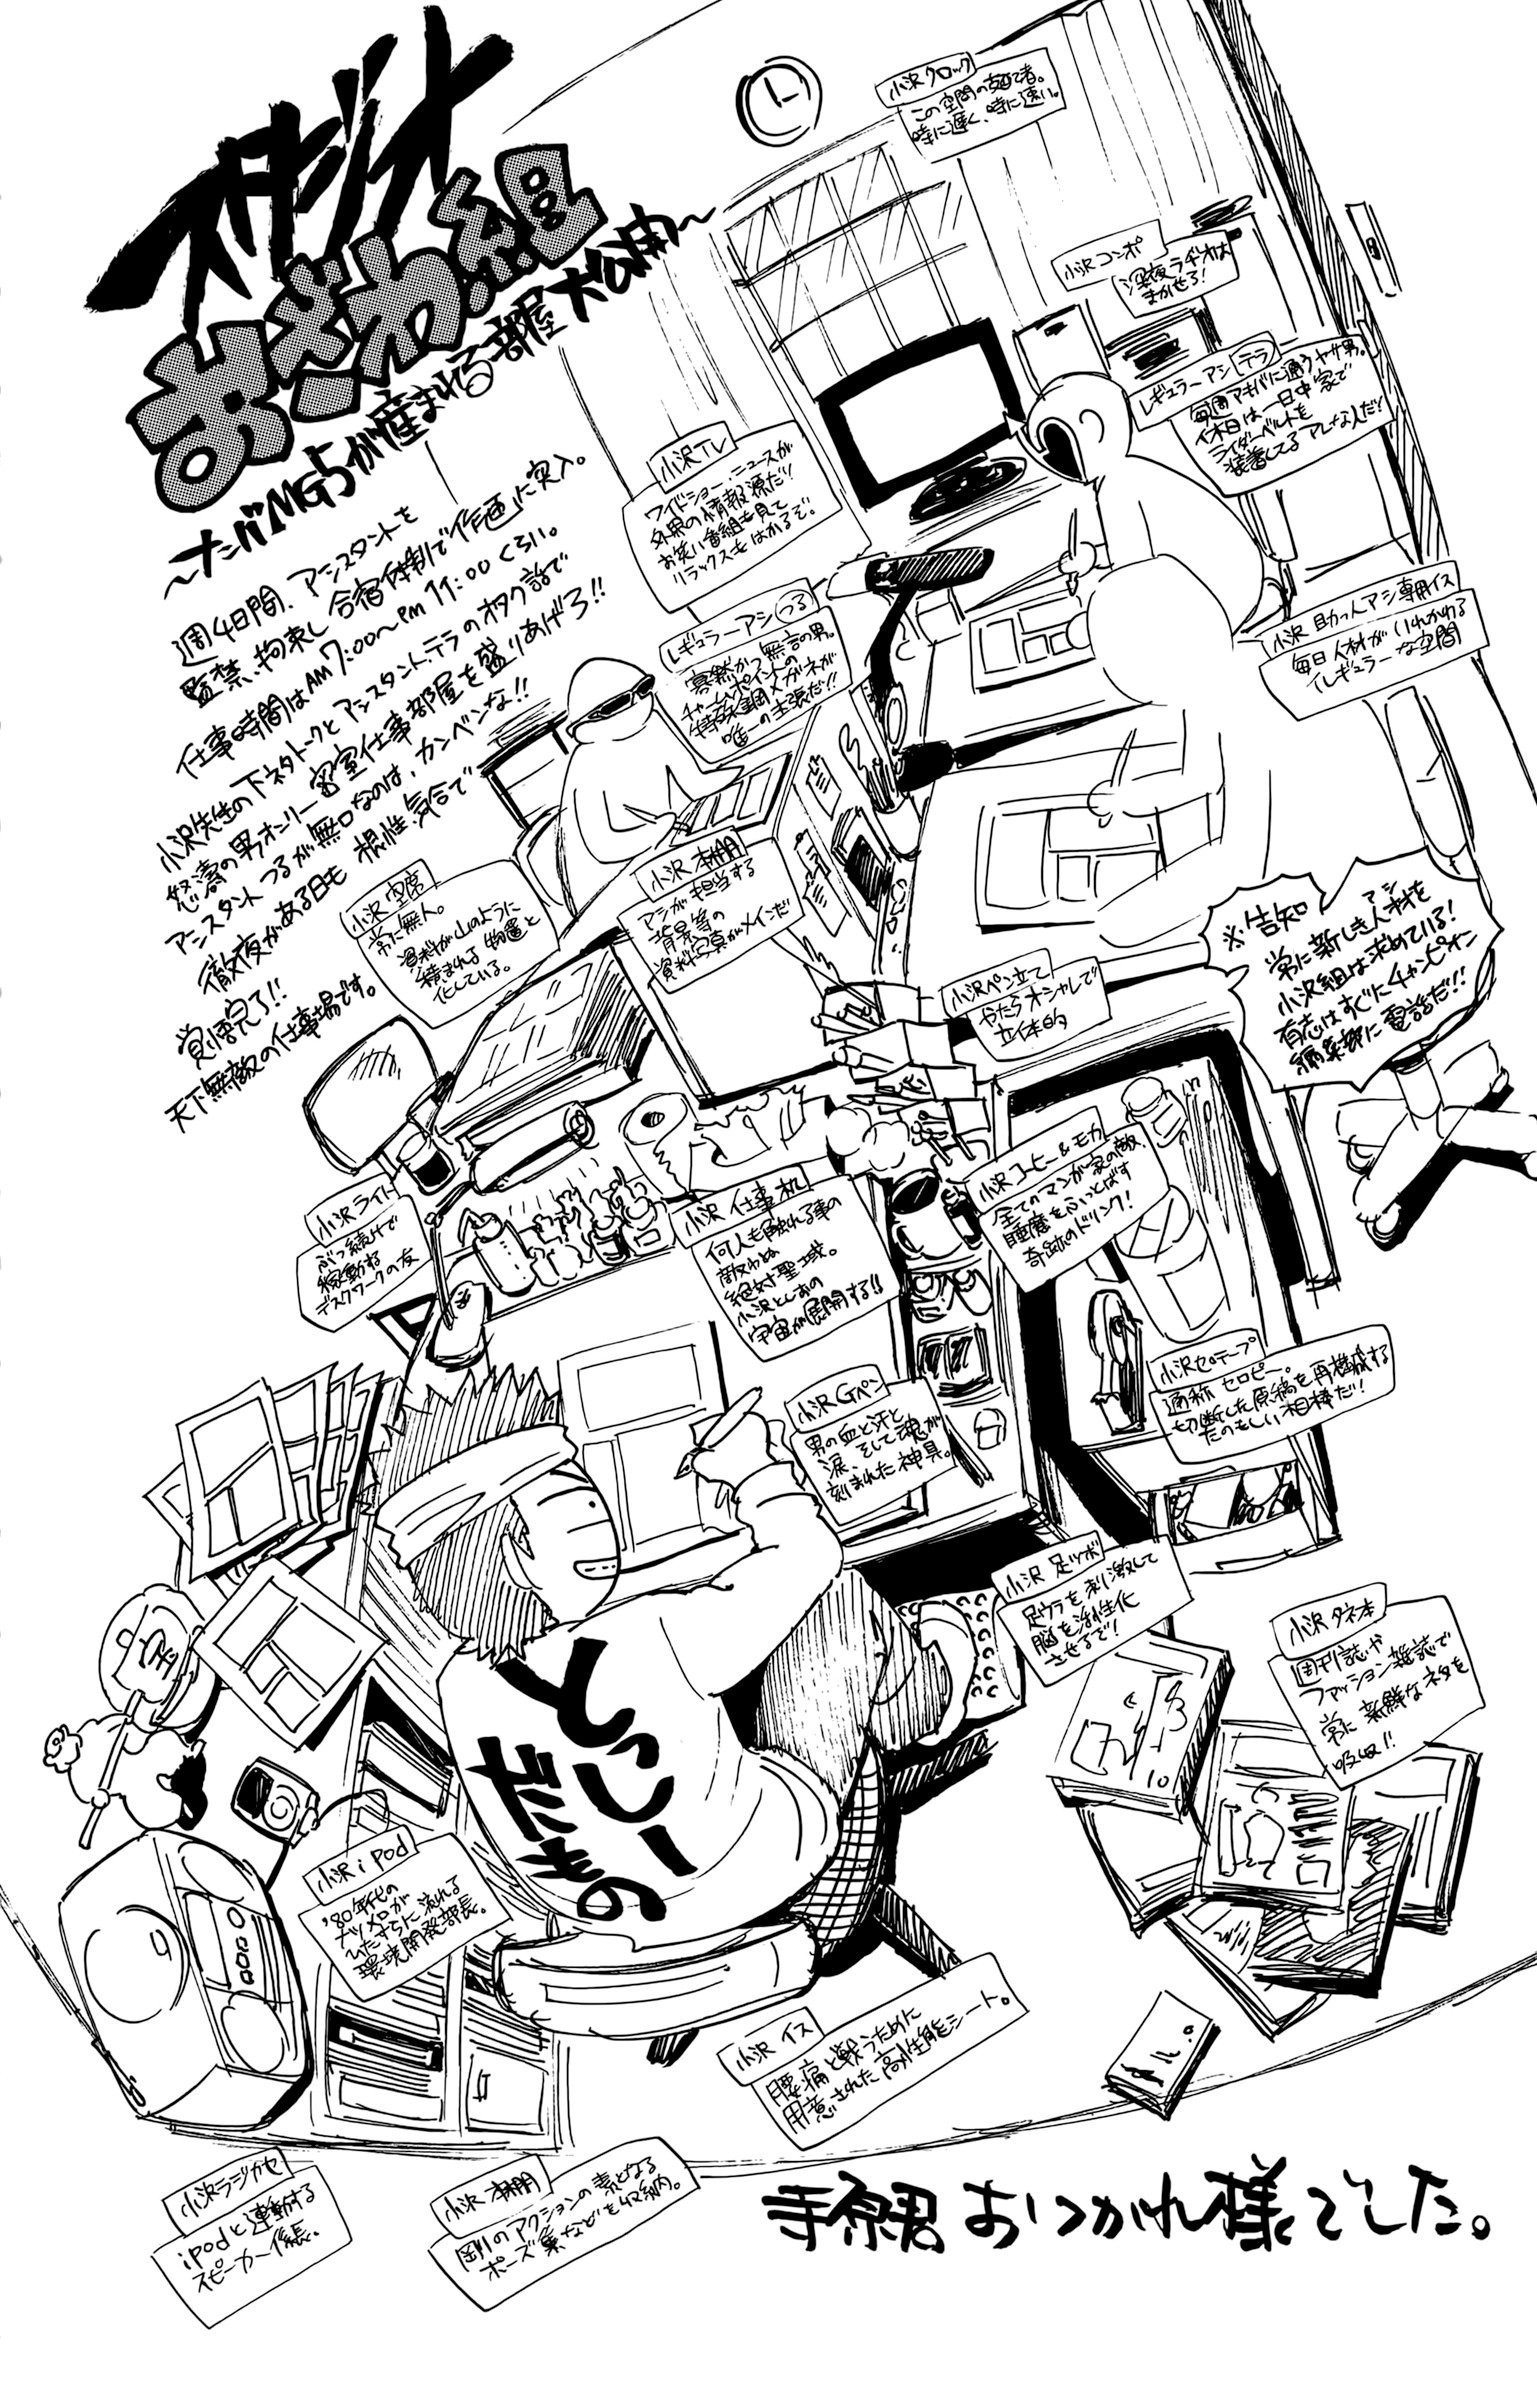 スタジオ
おざわ組
〜ナンバMG5が産まれる部屋大公開〜
週4日間、アシスタントを
監禁、拘束し合宿体制で「作画」に突入。
仕事時間はAM7:00〜PM11:00くらい。
小沢先生の下ネタトークとアシスタント、テラのオタク話で
怒濤の男オンリー密室仕事部屋を盛りあげろ!!
アシスタントつるが無口なのは、カンベンな!!
徹夜がある日も根性、気合で
覚悟完了!!
天下無敵の仕事場です。
小沢クロック
この空間の支配者。
時に遅く、時に速い。
小沢コンポ
深夜ラヂオは
まかせろ!
レギュラーアシ テラ
毎週アキバに通うヤサ男。
休日は一日中家で
ライダーベルトを
装着してるアレな人だ!
小沢TV
ワイドショー、ニュースが
外界の情報源だ!
お笑い番組も見て
リラックスもはかるぞ。
レギュラーアシ つる
寡黙かつ無言の男。
チャームポイントの
特殊鋼メガネが
唯一の主張だ!!
小沢 助っ人アシ専用イス
毎日人材がいれかわる
イレギュラーな空間
小沢 空席
常に無人。
資料が山のように
積まれ物置と
化している。
小沢 本棚
アシが担当する
背景等の
資料写真がメインだ
※告知
常に新しき人材を
アシ
小沢組は求めている!
有志はすぐにチャンピオン
編集部に電話だ!!
小沢ペン立て
やたらオシャレで
立体的
小沢ライト
ぶっ続けで
稼動する
デスクワークの友
小沢 仕事机
何人も触れる事の
敵わぬ
絶対聖域。
小沢としおの
宇宙が展開する!!
小沢コーヒー&モカ
全てのマンガ家の敵、
睡魔をぶっとばす
奇跡のドリンク!
小沢Gペン
男の血と汗と
涙、そして魂が
刻まれた神具。
小沢セロテープ
通称セロピー。
切断した原稿を再構成する
たのもしい相棒だ!
小沢 足ツボ
足ウラを刺激して
脳を活性化
させるぞ!
小沢 タネ本
週刊誌や
ファッション雑誌で
常に新鮮なネタを
吸収!!
とっしー
だもの
宝
小沢iPod
'80年代の
ナツメロが
ひたすらに流れる
環境開発部長。
小沢イス
腰痛と戦うために
用意された高性能シート。
小沢ラジカセ
iPodと連動する
スピーカー係長。
小沢 本棚
剛のアクションの素となる
ポーズ集などを収納。
手原君 おつかれ様でした。